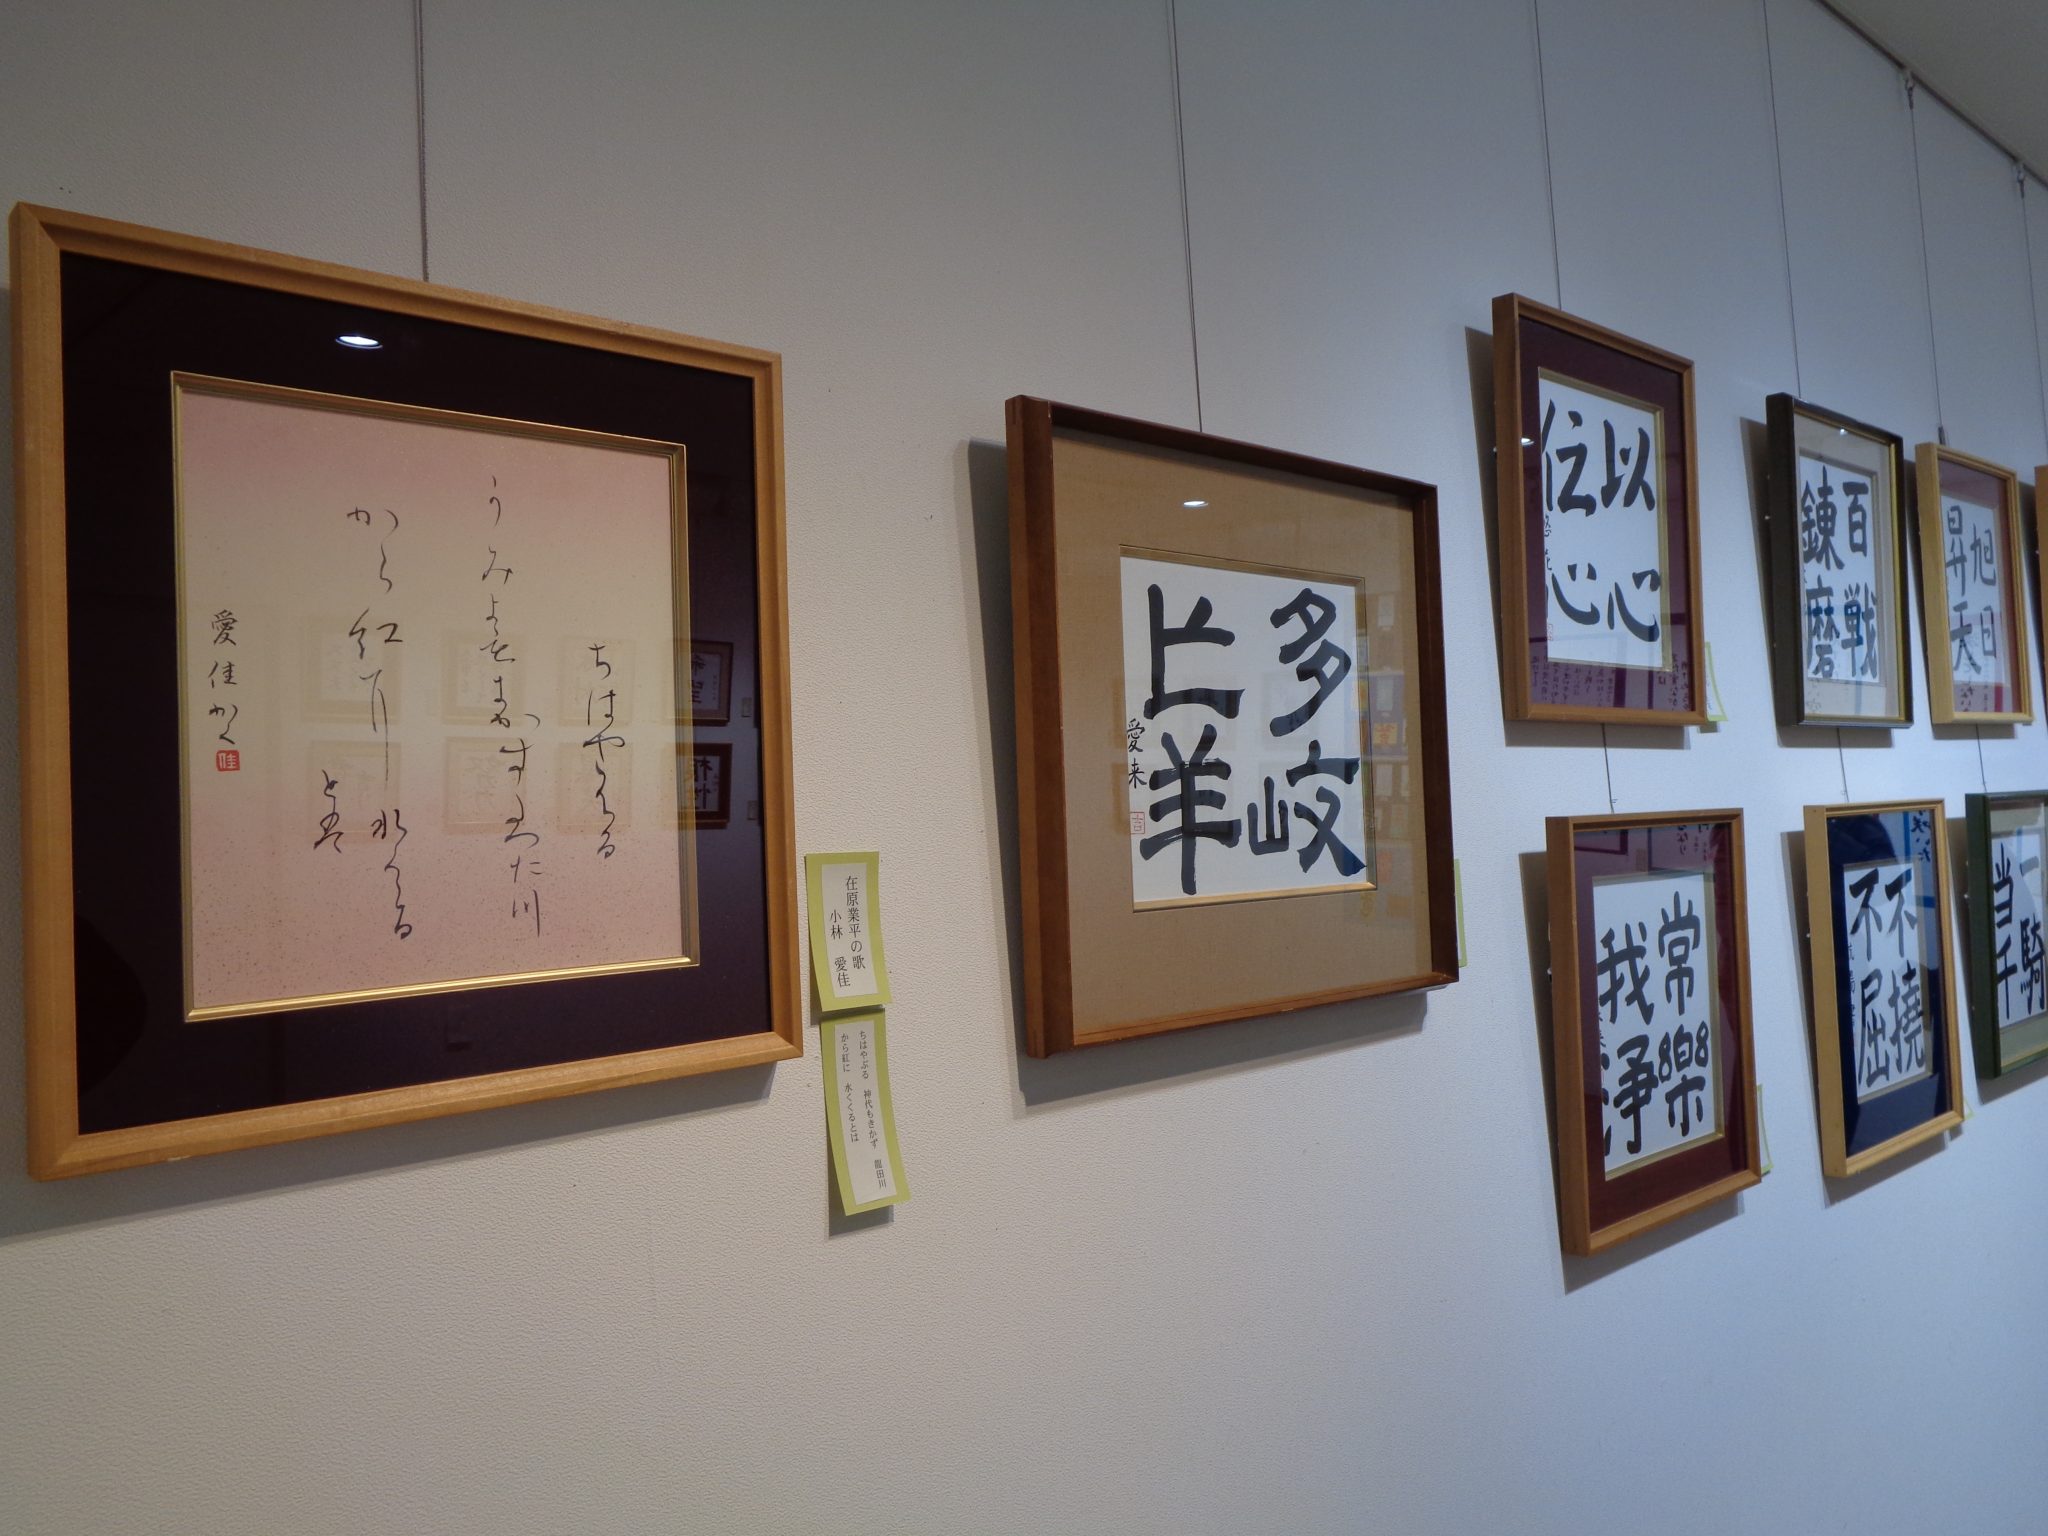 ちはやふる
うみよもきかすたつた川
から紅に水くゝる
とは
愛佳かく
佳
在原業平の歌
小林 愛佳
ちはやぶる 神代もきかず 龍田川
から紅に 水くくるとは
多岐
亡羊
愛来
吉
以心
伝心
悠花
百戦
錬磨
旭日
昇天
常樂
我浄
不撓
不屈
一騎
当千